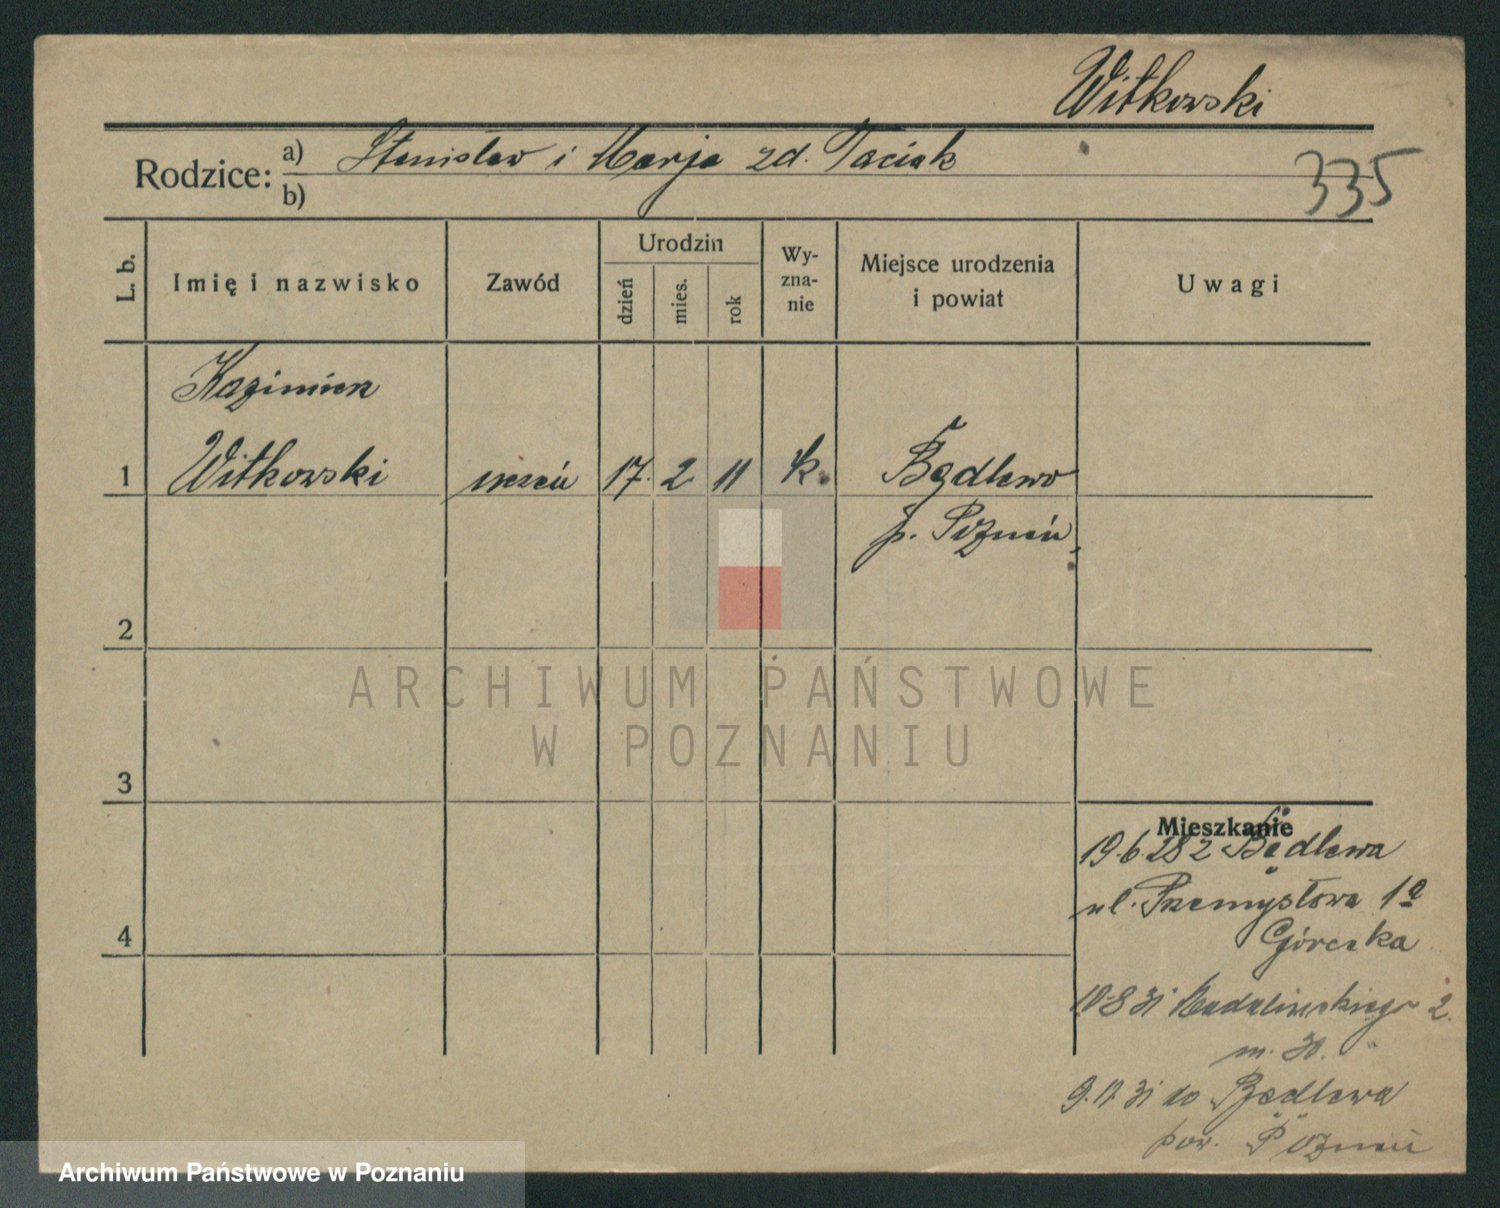 Witkowski
Rodzice: a) Stanisław i Marja zd. Taciak
b)
335
L. b.
Imię i nazwisko
Zawód
Urodzin
dzień
mies.
rok
Wy-
zna-
nie
Miejsce urodzenia
i powiat
Uwagi
Kazimierz
1 Witkowski uczeń 17. 2 11 k. Będlewo
p. Poznań
2
ARCHIWUM PAŃSTWOWE
W POZNANIU
3
Mieszkanie
19.6.28 z Będlewa
ul. Przemysłowa 1a
4
Górecka
10-8 31 Madalińskiego 2.
m. 30.
9. 12 31 do Będlewa
pow. Poznań
Archiwum Państwowe w Poznaniu